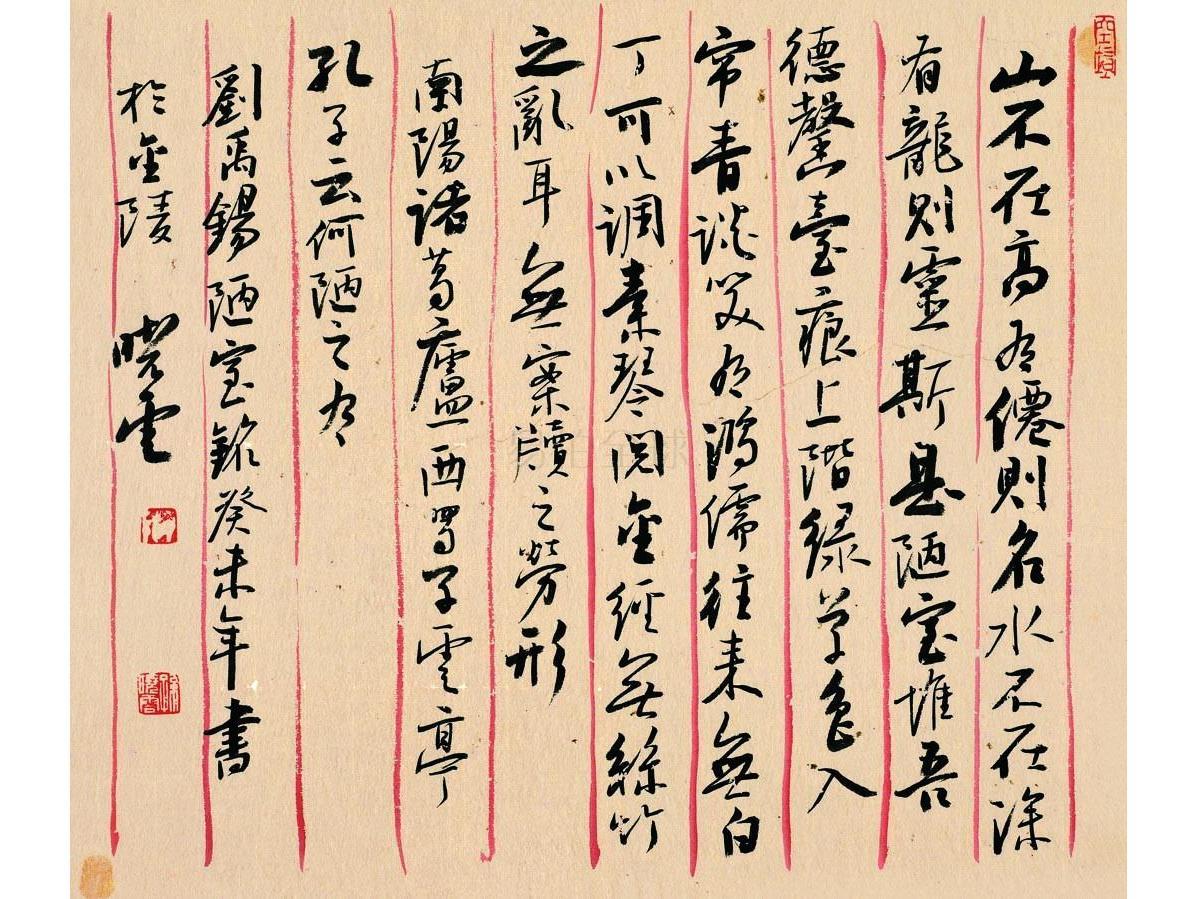 山不在高有僊則名水不在深
有龍則靈斯是陋室惟吾
德馨臺痕上階緑草色入
帘青談笑有鴻儒往来無白
丁可以調素琴閲金經無絲竹
之亂耳無案牘之勞形
南陽諸葛廬西蜀子雲亭
孔子云何陋之有
劉禹錫陋室銘癸未年書
於金陵 曉雲